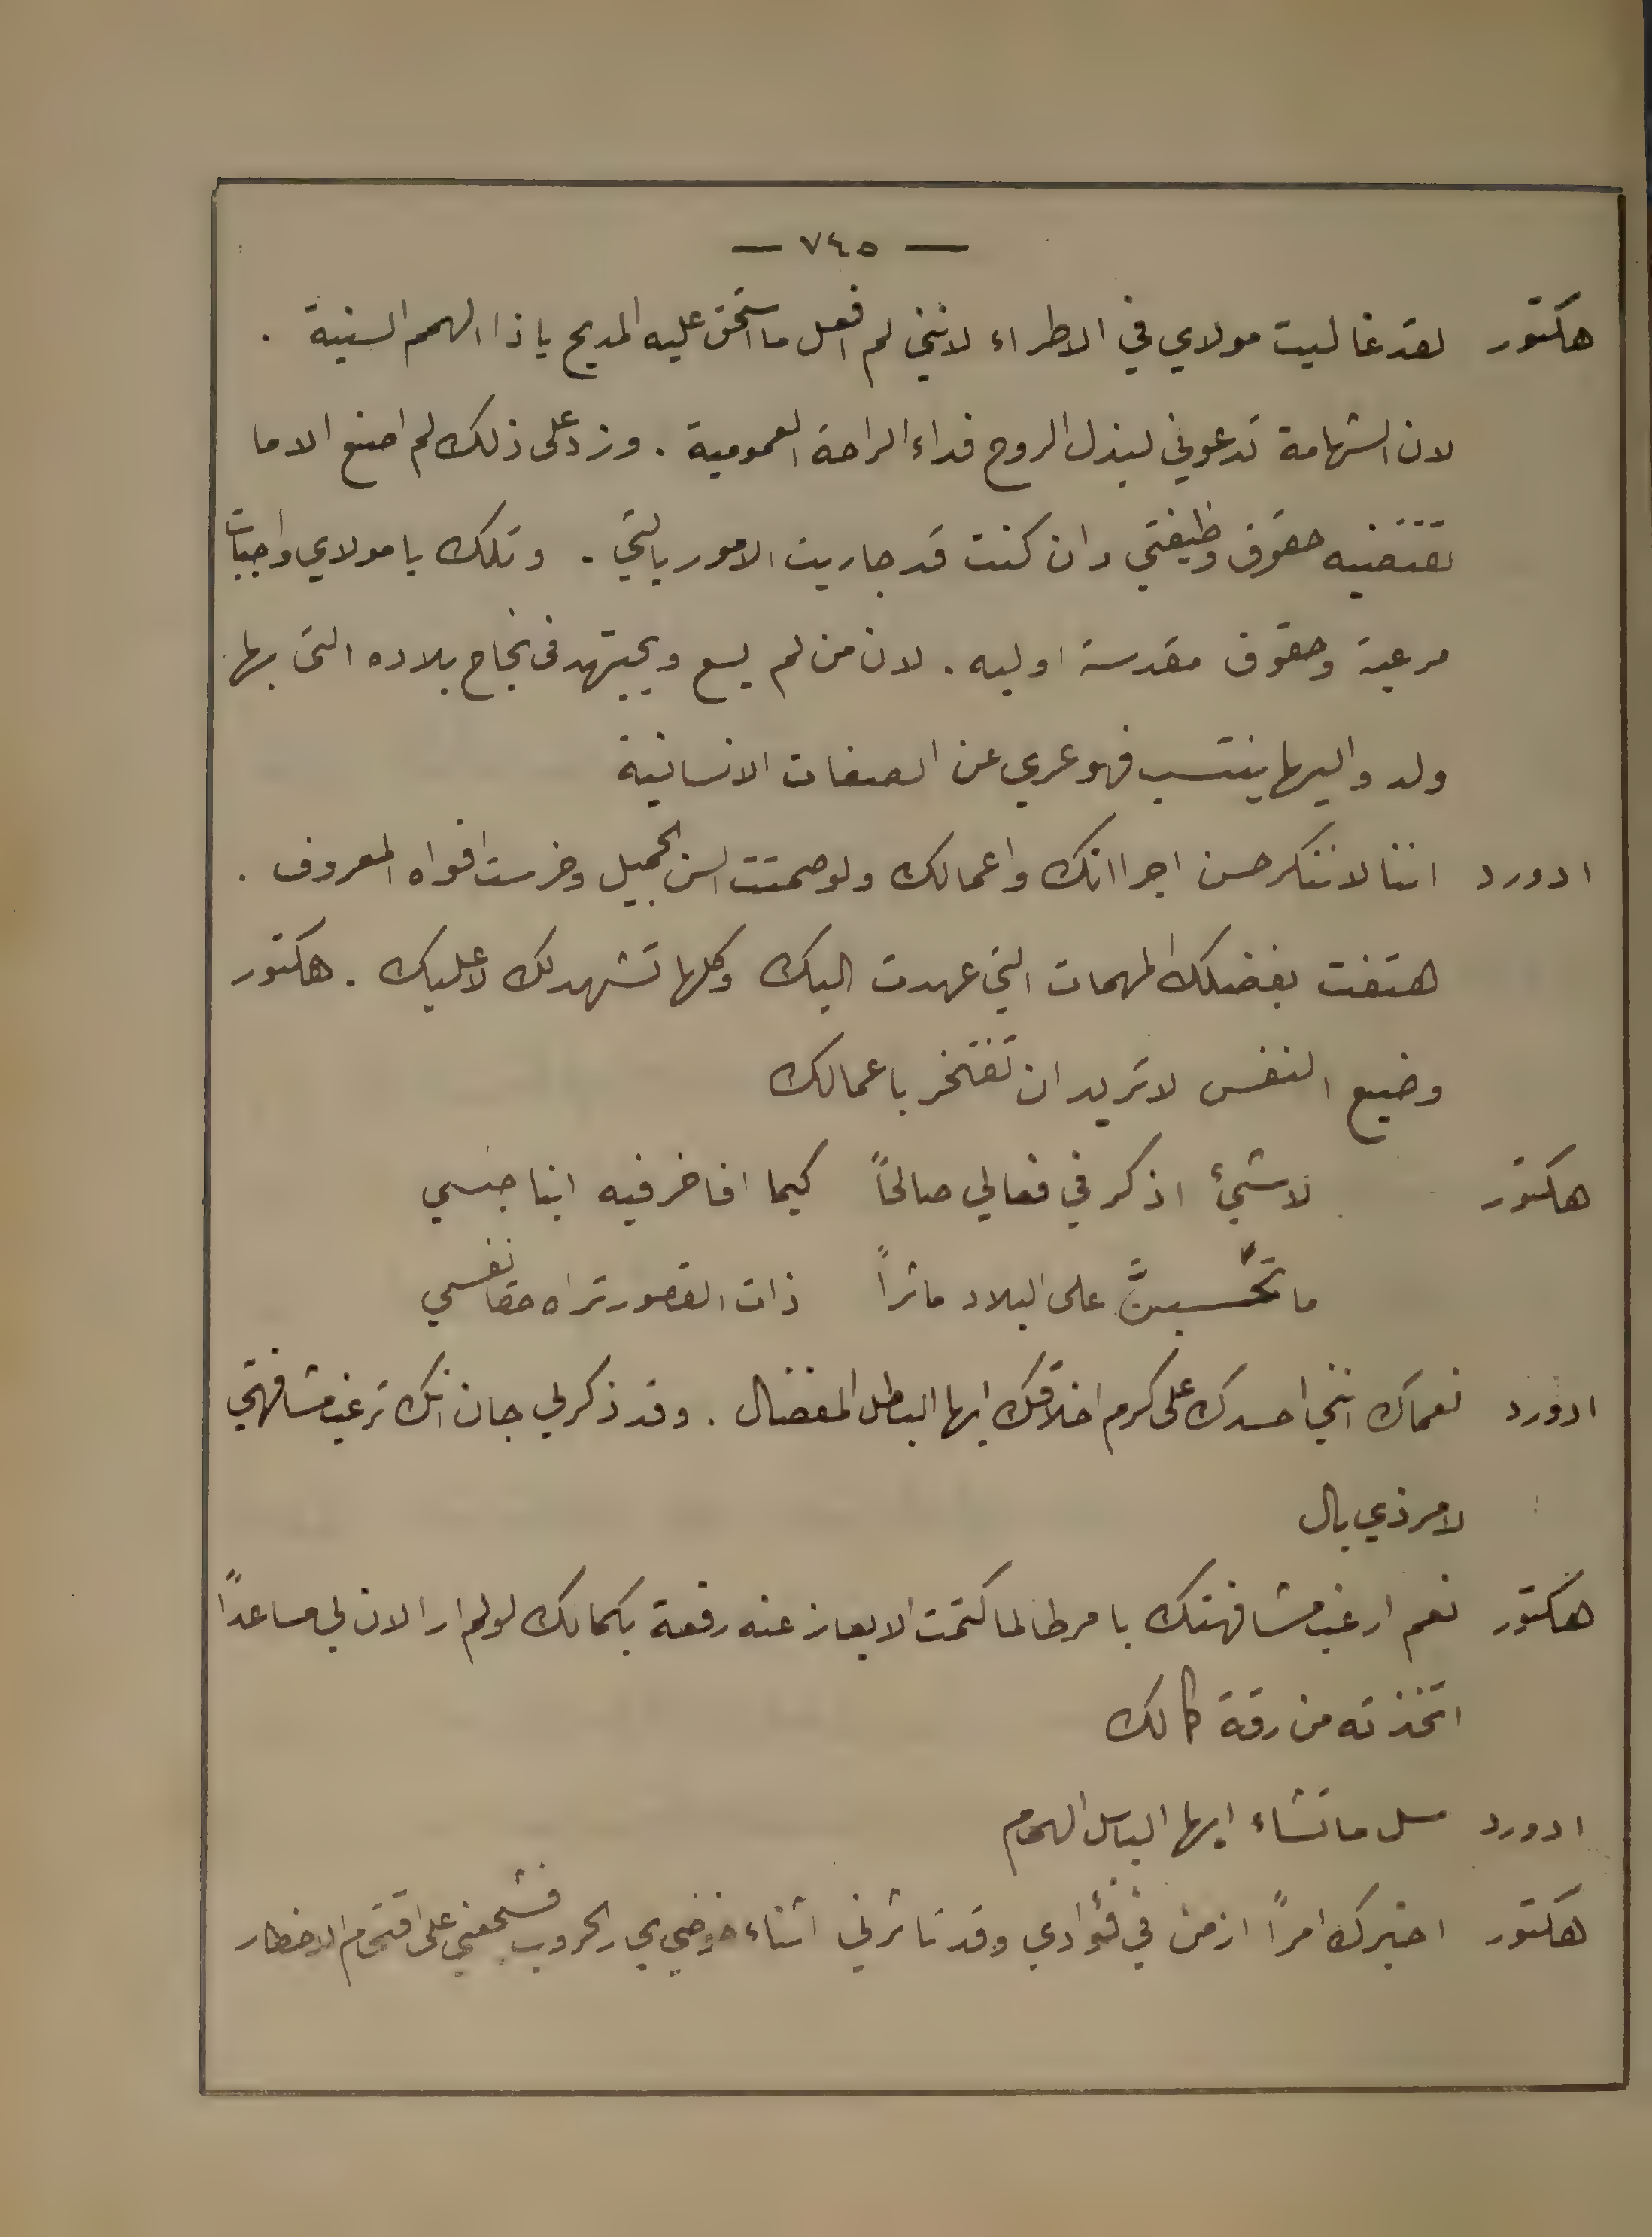 — ٧٤٥ —
هكتور لقد غاليت مولاي في الاطراء لانني لم افعل ما استحق عليه المديح يا ذا الهمم السنية .
لان الشهامة تدعوني لبذل الروح فداء الراحة العمومية . وزد على ذلك لم اصنع الا ما
تقتضيه حقوق وظيفتي وان كنت قد جاريت الامور بالتي . وتلك يا مولاي واجبات
مرعية وحقوق مقدسة اوليه . لان من لم يسع ويجتهد في نجاح بلاده التي بها
ولد واليها ينتسب فهو عري عن الصفات الانسانية
ادورد اننا لا ننكر حسن اجراآتك واعمالك ولو صمتت السن الجميل وخرست افواه المعروف .
هتفت بفضلك المهمات التي عهدت اليك وكلها تشهد لك لا عليك . هكتور
وضيع النفس لا تريد ان تفتخر باعمالك
هكتور لا شيئ اذكر في فعالي صالحاً كيما افاخر فيه ابنا جنسي
ما تحسبنَّ على البلاد ماثراً ذات القصور تراه حقا نفسي
ادورد نعماك انني احسدك على كرم اخلاقك ايها البطل المفضال . وقد ذكر لي جان انك ترغب مشافهتي
لامر ذي بال
هكتور نعم ارغب مشافهتك بامر طالما كتمت الايعاز عنه رفعة بكمالك لو لم ار الان لي مساعداً
اتخذته من رقة كمالك
ادورد سل ما تشاء ايها الباسل الهمام
هكتور اخبرك امراً ازمن في فؤادي وقد تاثرني اثناء خوضي بحار الحروب فشجعني على اقتحام الاخطار